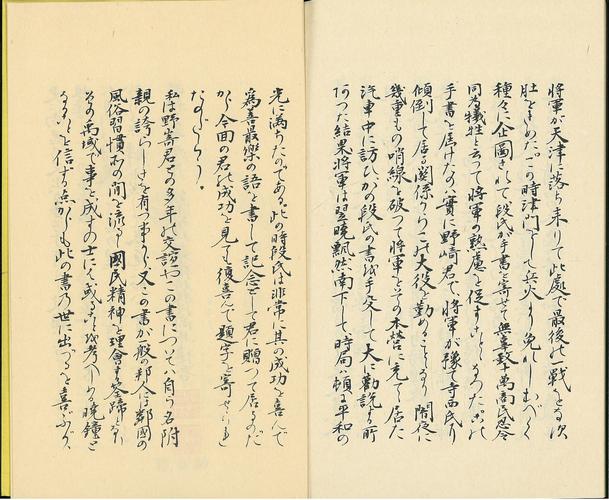 将軍が天津に落ち来りて此處で最後の一戰をなす決
肚をきめた。この時津門をして兵火より免れしむべく
種々に企圖されて段氏が手書を寄せて無辜数十萬商民忍令
同為犠牲と云つて将軍の熟慮を促すことゝなつたこの
手書を届けたのは實に野崎君で、将軍が豫て寺西氏に
傾倒して居る関係からこの大役を勤めることゝなり闇夜に
幾重もの哨線を破つて将軍をその本営に充てゝ居た
汽車中に訪ひかの段氏の書を手交して大に勸説する所
があつた結果将軍は翌暁飄然南下して時局は頓に平和の
光に満ちたのである。此の時段氏は非常に其の成功を喜んで
為善最樂の語を書して記念として君に贈つて居るのだ
から今回の君の成功を見て復喜んで題字を寄せられ
たのだらう。
私は野崎君との多年の交誼やこの書については自ら名附
親の誇らしさを有つ事から又この書が一般の邦人には鄰國の
風俗習慣の間を流るゝ國民精神を理會する筌蹄となり
その禹域で事を成すの士にて或るものを考へしめる暁鐘と
なることを信ずる点からも此の書の世に出づるを喜ぶが、